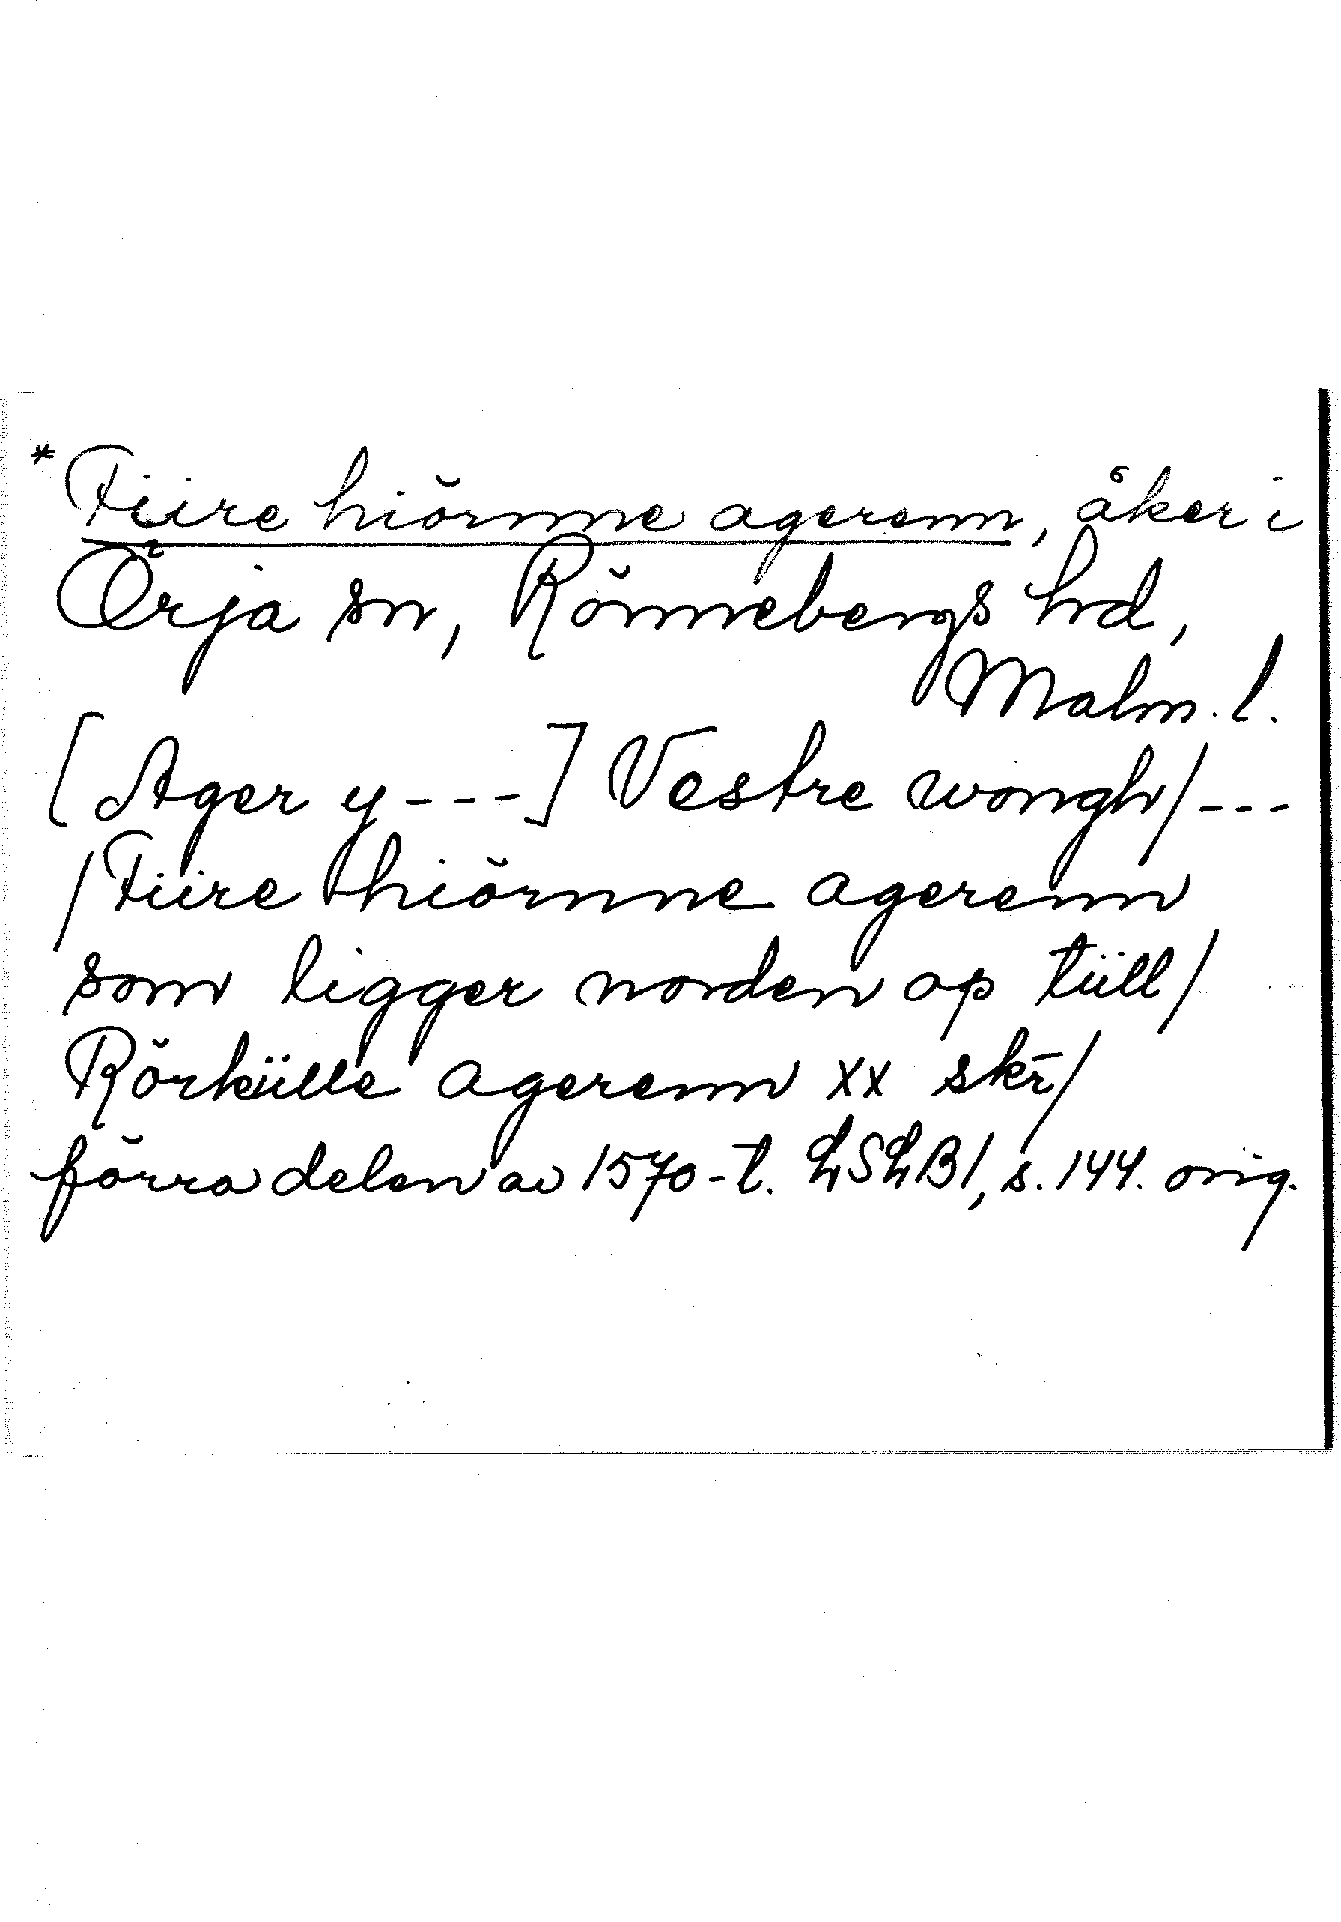 *Fiire hiörnne agerenn, åker i
Örja sn, Rönnebergs hd,
Malm. l.
[Ager y---] Vestre wongh/---
/Fiire hiörnne agerenn
som ligger norden op tüll/
Rörkülle agerenn xx skr̄/
förra delen av 1570-t. LSLB1, s. 144. orig.